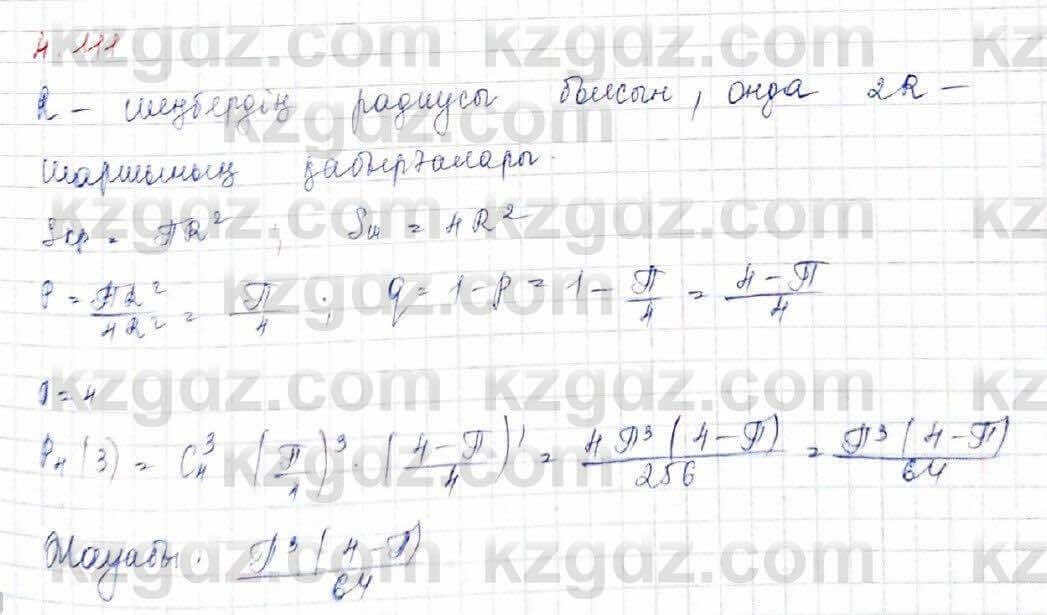 4.111
R – шеңбердің радиусы болсын, онда 2R –
шаршының қабырғалары.
Sкр = ПR² ; Sш = 4R²
P = ПR²/4R² = П/4 ; q = 1 – P = 1 – П/4 = (4 – П)/4
n = 4
P₄(3) = C₄³ (П/1)³ · ((4 – П)/4)¹ = 4П³(4 – П)/256 = П³(4 – П)/64
Жауабы: П³(4 – П)/64